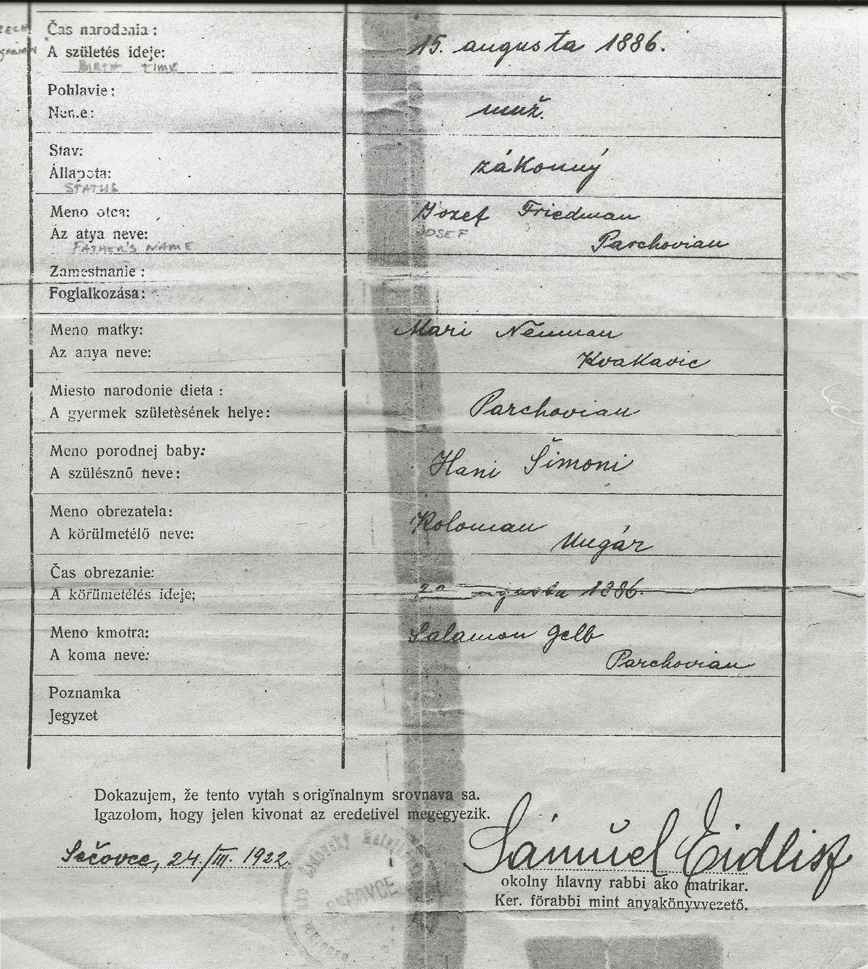 Čas narodenia : 15. augusta 1886.
A születés ideje:
BIRTH TIME
Pohlavie : muž.
Neme:
Stav: zákonný
Állapota:
STATUS
Meno otca: Jozef Friedman
Az atya neve: JOSEF Parchovian
FATHER'S NAME
Zamestnanie :
Foglalkozása:
Meno matky: Mari Neuman
Az anya neve: Kvakavic
Miesto narodonie dieta : Parchovian
A gyermek születèsének helye:
Meno porodnej baby: Hani Šimoni
A szülésznő neve:
Meno obrezatela: Koloman
A körülmetélő neve: Ungár
Čas obrezanie:
A körümetélés ideje; augusta 1886.
Meno kmotra: Salamon Gelb
A koma neve: Parchovian
Poznamka
Jegyzet
Dokazujem, že tento vytah s origïnalnym srovnava sa.
Igazolom, hogy jelen kivonat az eredetivel megegyezik.
Sečovce, 24/III. 1922.
Sámuel Eidlisz
okolny hlavny rabbi ako matrikar.
Ker. főrabbi mint anyakönyvvezető.
SEČOVCE